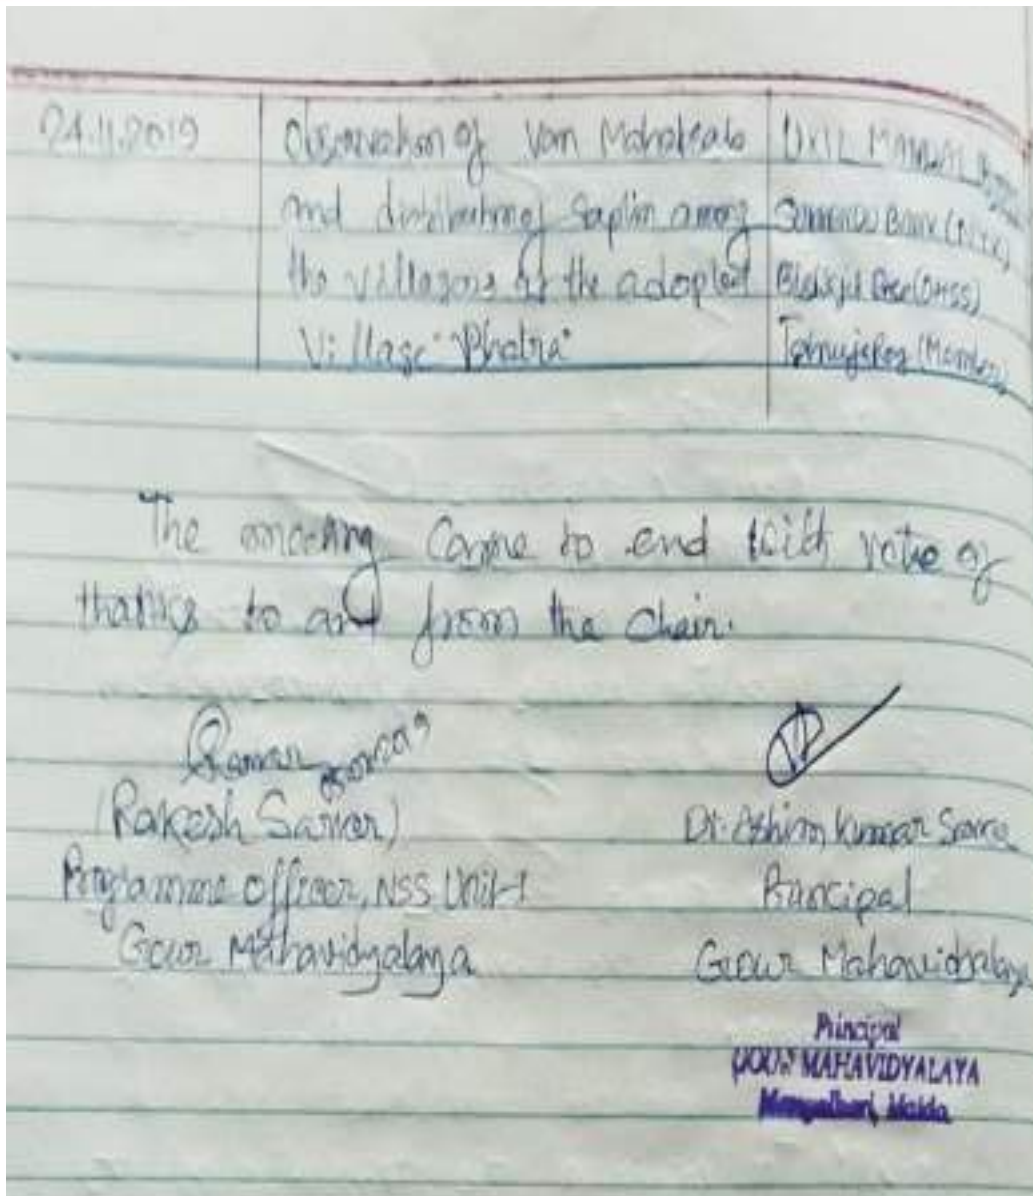 24.11.2019
Observation of Van Mahotsab
and distributing Saplin among
the villagers of the adopted
Village "Bhatra"
UKIL MANDAL
(Member)
The meeting Came to end with vote of
thanks to and from the Chair.
Sarkar
(Rakesh Sarkar)
Programme Officer, NSS Unit-I
Gour Mahavidyalaya
Dr. Ashim Kumar
Principal
Gour Mahavidyalaya
Principal
GOUR MAHAVIDYALAYA
Mangalbari, Malda